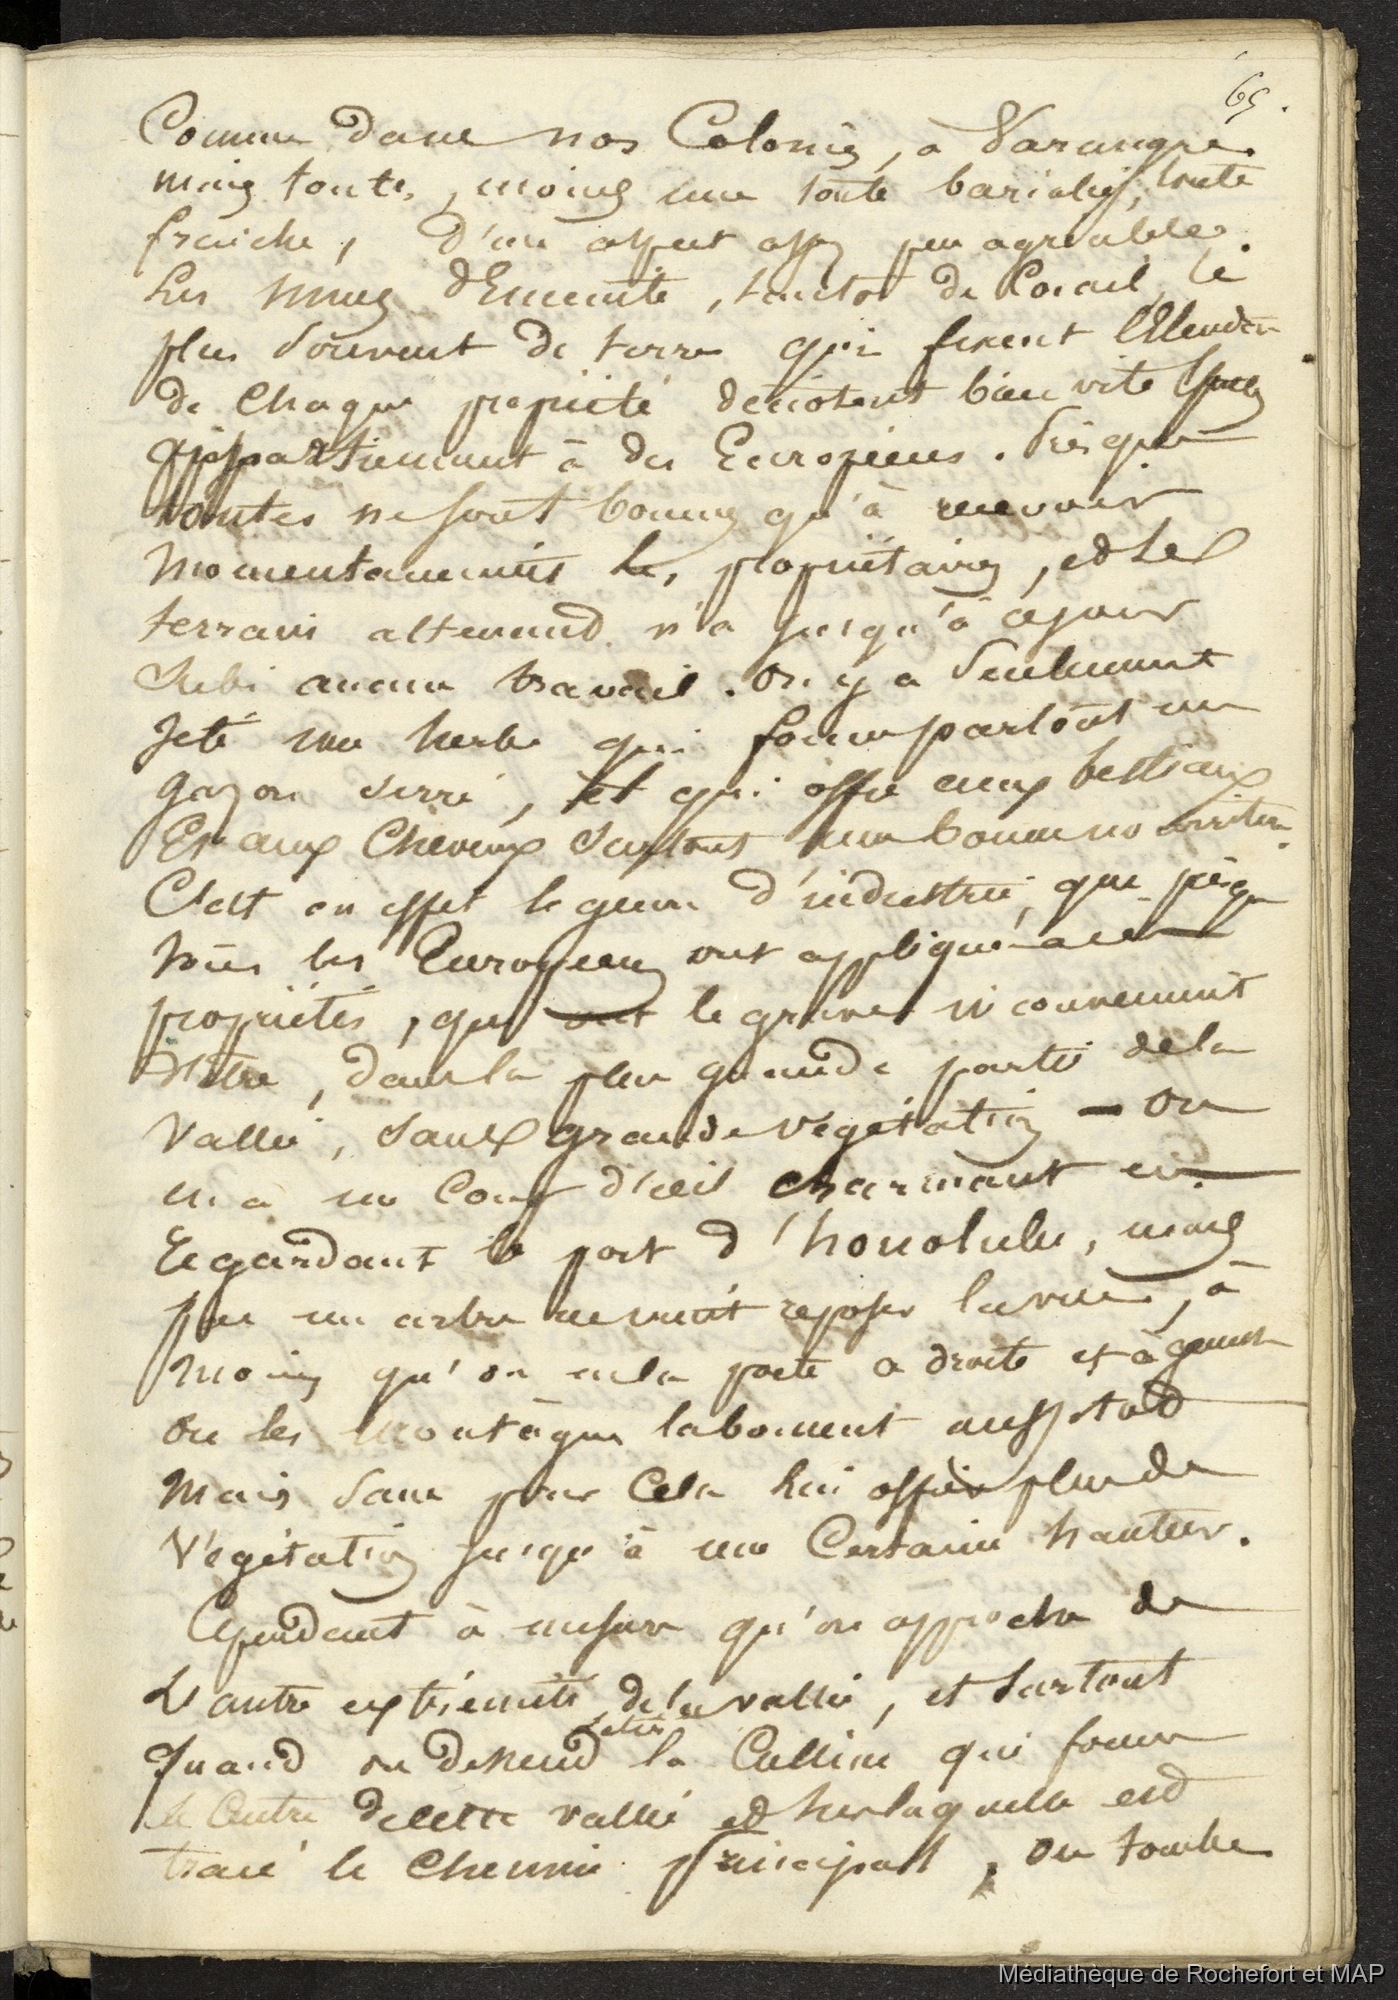 65.
Comme dans nos Colonies, a Varangue
mais toutes, moins une toute bariolée, toute
fraiche, d'un aspect assez peu agréable.
Les murs d'Enceinte, tantot de Corail, le
plus souvent de terre qui fixent l'étendue
de Chaque propriété denotent bien vite qu'elles
appartiennent à des Européens. Presque
toutes ne sont bonnes qu'à recevoir
momentanement les propriétaires, et le
terrain attenant n'a jusqu'à ce jour
Subi aucun travail. On y a Seulement
jeté une herbe qui forme partout un
gazon serré, et qui offre aux bestiaux
Et aux Chevaux surtout une bonne nourriture.
C'est en effet le genre d'industrie, que presque
tous les Européens ont appliqué a ces
propriétés, qui ont le grave inconvenient
d'être, dans la plus grande partie de la
Vallée, sans grande végétation — On
en a un Coup d'œil charmant en
Regardant le port d'honolulu, mais
pas un arbre ne vient reposer la vue, à
moins qu'on ne la porte a droite et à gauche
ou les montagnes la bornent aussitot
mais sans pour Cela lui offrir plus de
Végétation jusqu'à une Certaine hauteur.
Cependant à mesure qu'on approche de
L'autre extrémité de la vallée, et surtout
quand on descend la Colline qui forme
le Centre de cette vallée et sur laquelle est
tracé le Chemin principal, on tombe
Médiathèque de Rochefort et MAP